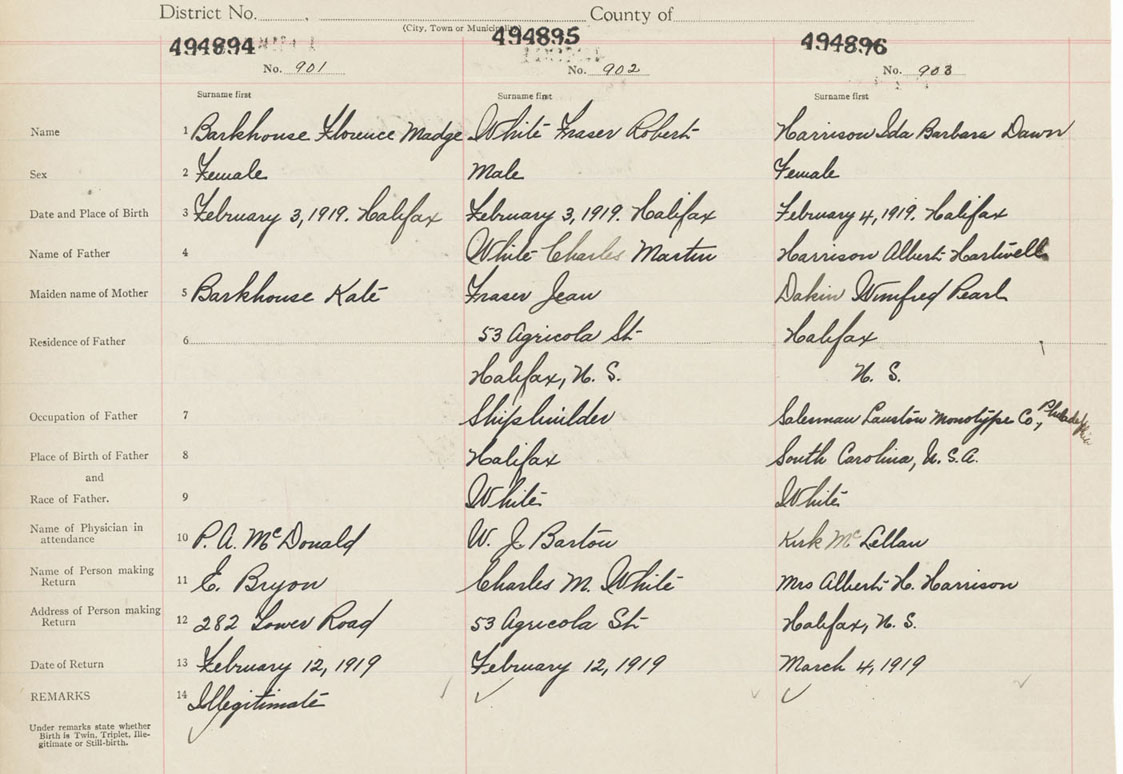 District No. County of
(City, Town or Municipality)
494894 494895 494896
No. 901 No. 902 No. 903
Surname first Surname first Surname first
Name 1 Barkhouse Florence Madge White Fraser Robert Harrison Ida Barbara Dawn
Sex 2 Female Male Female
Date and Place of Birth 3 February 3, 1919. Halifax February 3, 1919. Halifax February 4, 1919. Halifax
Name of Father 4 White Charles Martin Harrison Albert Hartwell
Maiden name of Mother 5 Barkhouse Kate Fraser Jean Dakin Winifred Pearl
Residence of Father 6 53 Agricola St Halifax
Halifax, N. S. N. S.
Occupation of Father 7 Shipbuilder Salesman Lanston Monotype Co., Philadelphia
Place of Birth of Father 8 Halifax South Carolina, U.S.A.
and
Race of Father. 9 White White
Name of Physician in
attendance 10 P. A. McDonald W. J. Barton Kirk McLellan
Name of Person making
Return 11 E. Bryon Charles M. White Mrs Albert H. Harrison
Address of Person making
Return 12 282 Lower Road 53 Agricola St Halifax, N. S.
Date of Return 13 February 12, 1919 February 12, 1919 March 4, 1919
REMARKS 14 Illegitimate
Under remarks state whether
Birth is Twin, Triplet, Ille-
gitimate or Still-birth.